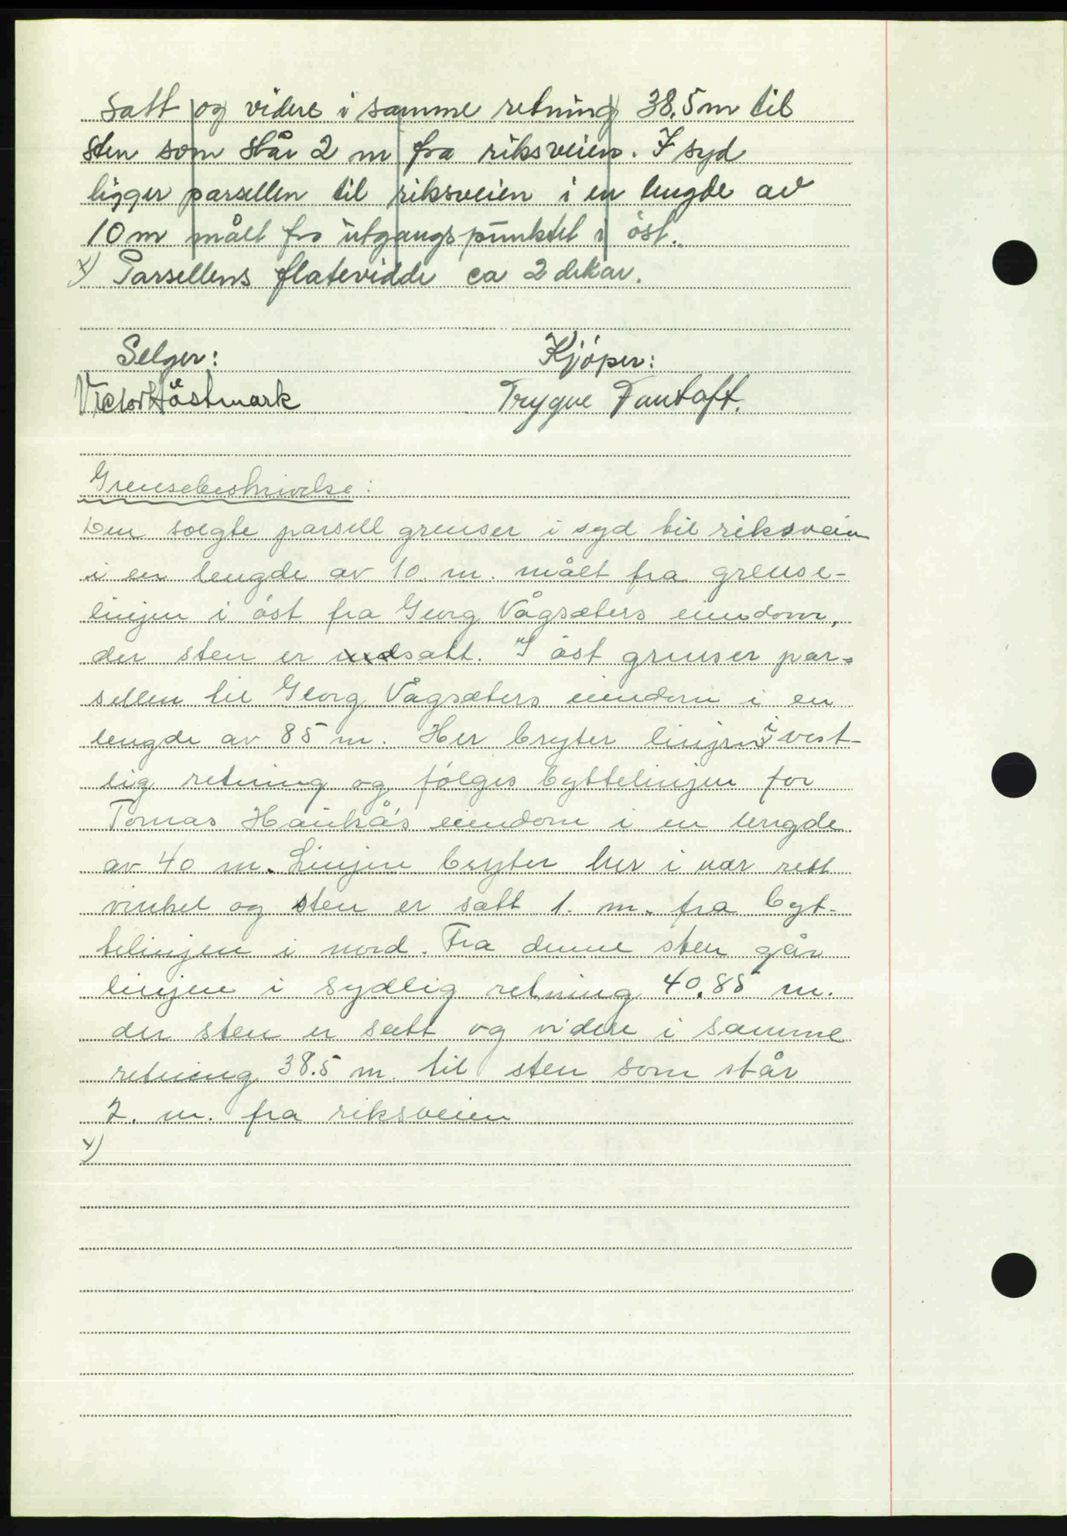 satt og videre i samme retning 38,5 m til
sten som står 2 m fra riksveien. I syd
ligger parsellen til riksveien i en lengde av
10 m målt fra utgangspunktet i öst.
x) Parsellens flatevidde ca 2 dekar.
Selger: Kjöper:
Victor Höstmark Trygve Fantoft.
Grensebeskrivelse:
Den solgte parsell grenser i syd til riksveien
i en lengde av 10. m. målt fra grense-
linjen i öst fra Georg Vågsæters eiendom,
der sten er satt. I öst grenser par-
sellen til Georg Vågsæters eiendom i en
lengde av 85 m. Her bryter linjen i vest-
lig retning og fölges byttelinjen for
Tomas Haukås eiendom i en lengde
av 40 m. Linjen bryter her i nær rett
vinkel og sten er satt 1. m. fra byt-
telinjen i nord. Fra denne sten går
linjen i sydlig retning 40.85 m.
der sten er satt og videre i samme
retning 38.5 m. til sten som står
2. m. fra riksveien
x)